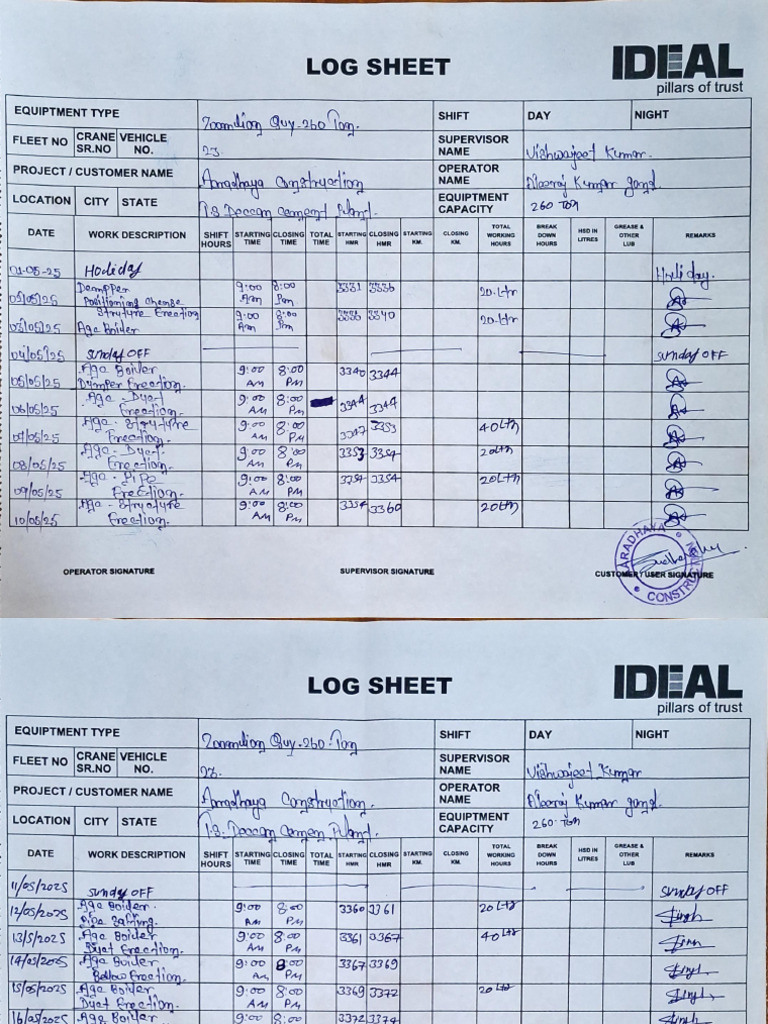 LOG SHEET
IDEAL
pillars of trust
EQUIPTMENT TYPE Zoomlion Quy-260 Ton. SHIFT DAY NIGHT
FLEET NO CRANE SR.NO VEHICLE NO. 23. SUPERVISOR NAME Vishwajeet Kumar.
PROJECT / CUSTOMER NAME Aaradhaya Construction OPERATOR NAME Kumar
LOCATION CITY STATE T.S. Deccan Cement Pland. EQUIPTMENT CAPACITY 260 Ton
DATE WORK DESCRIPTION SHIFT HOURS STARTING TIME CLOSING TIME TOTAL TIME STARTING HMR CLOSING HMR STARTING KM. CLOSING KM. TOTAL WORKING HOURS BREAK DOWN HOURS HSD IN LITRES GREASE & OTHER LUB REMARKS
01-05-25 Holiday Holiday.
02/05/25 Dampper Positioning Chense Struture Erection 9:00 Am 8:00 Pm 3331 3336 20-Ltr
03/05/25 Aga Boiler 9:00 Am 8:00 Pm 3336 3340 20-Ltr
04/05/25 Sunday OFF Sunday OFF
05/05/25 Aga Boiler Dumper Erection. 9:00 AM 8:00 PM 3340 3344
06/05/25 Aga - Duct Erection. 9:00 AM 8:00 PM 3344 3344
07/05/25 Aga - Struture Erection. 9:00 AM 8:00 PM 3347 3353 40Ltr
08/05/25 Aga - Duct Erection. 9:00 AM 8:00 PM 3353 3354 20Ltr
09/05/25 Aga - Pipe Erection. 9:00 AM 8:00 PM 3354 3354 20Ltr
10/05/25 Aga - Structure Erection. 9:00 AM 8:00 PM 3354 3360 20Ltr
OPERATOR SIGNATURE SUPERVISOR SIGNATURE CUSTOMER / USER SIGNATURE
ARADHAYA CONSTRUCTION
LOG SHEET
IDEAL
pillars of trust
EQUIPTMENT TYPE Zoomlion Quy-260-Ton SHIFT DAY NIGHT
FLEET NO CRANE SR.NO VEHICLE NO. 23. SUPERVISOR NAME Vishwajeet Kumar
PROJECT / CUSTOMER NAME Aaradhaya Construction. OPERATOR NAME Kumar
LOCATION CITY STATE T.S. Deccan Cemen Pland. EQUIPTMENT CAPACITY 260-Ton
DATE WORK DESCRIPTION SHIFT HOURS STARTING TIME CLOSING TIME TOTAL TIME STARTING HMR CLOSING HMR STARTING KM. CLOSING KM. TOTAL WORKING HOURS BREAK DOWN HOURS HSD IN LITRES GREASE & OTHER LUB REMARKS
11/05/2025 Sunday OFF Sunday OFF
12/05/2025 Aga Boider. Pipe 9:00 AM 8:00 PM 3360 3361 20 Ltr Singh
13/5/2025 Aga Boider Duct Erection. 9:00 AM 8:00 PM 3361 3367 40 Ltr
14/05/2025 Aga Boider Bellow Erection. 9:00 AM 8:00 PM 3367 3369 Singh
15/05/2025 Aga Boider Duct Erection 9:00 AM 8:00 PM 3369 3372 20 Ltr Singh
16/05/2025 Aga Boider 9:00 8:00 3372 3374 Singh